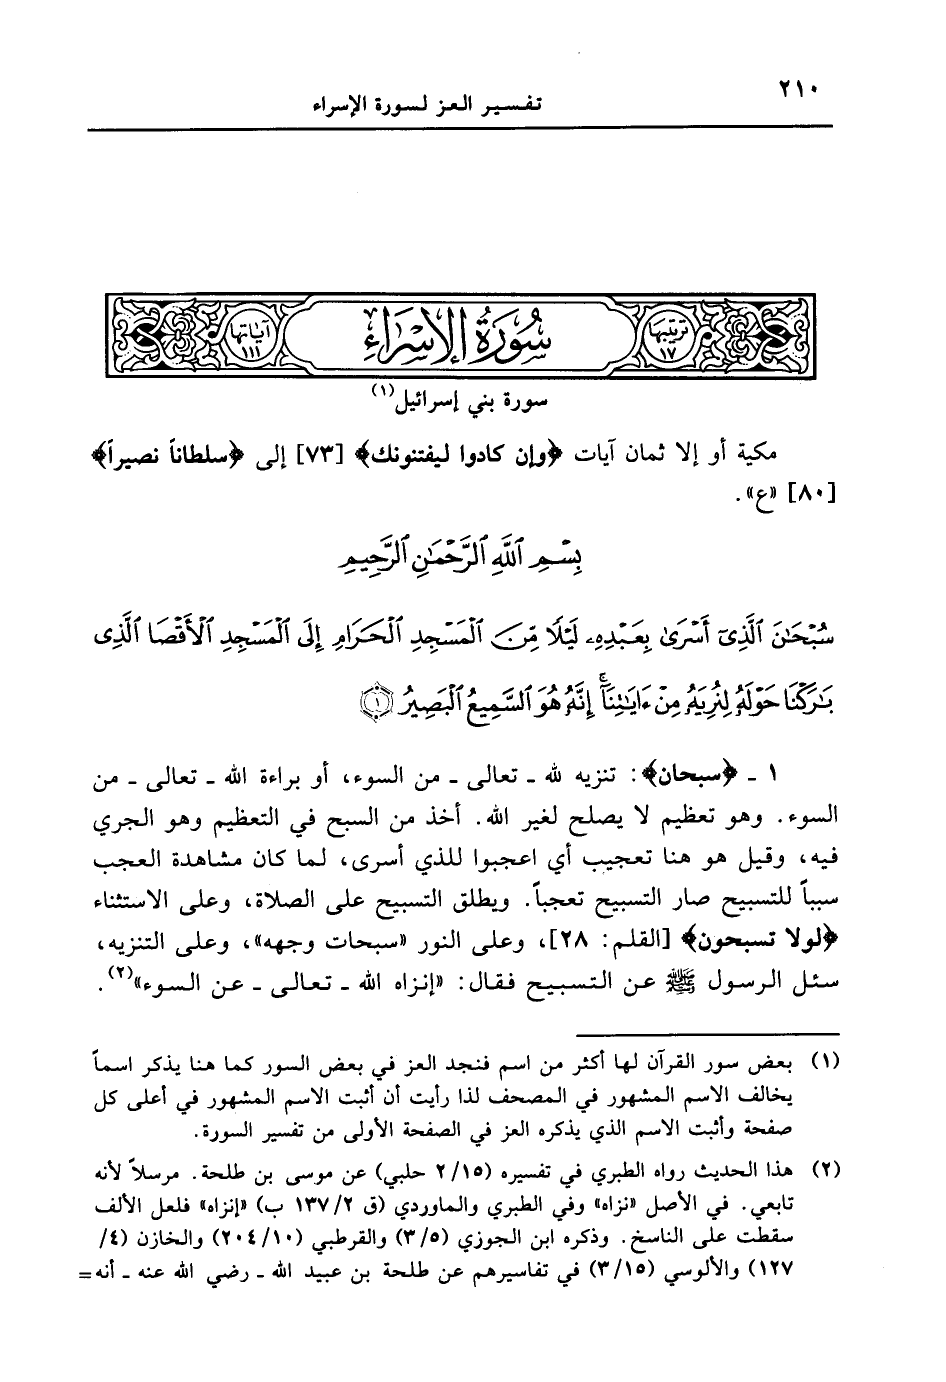 ٢١٠
تفسير العز لسورة الإسراء
ترتيبها ١٧ سُورَةُ الإِسْرَاءِ آياتها ١١١
سورة بني إسرائيل(١)
مكية أو إلا ثمان آيات ﴿وإن كادوا ليفتنونك﴾ [٧٣] إلى ﴿سلطاناً نصيراً﴾
[٨٠] «ع».
بِسْمِ اللَّهِ الرَّحْمَٰنِ الرَّحِيمِ
سُبْحَٰنَ ٱلَّذِىٓ أَسْرَىٰ بِعَبْدِهِۦ لَيْلًا مِّنَ ٱلْمَسْجِدِ ٱلْحَرَامِ إِلَى ٱلْمَسْجِدِ ٱلْأَقْصَا ٱلَّذِى
بَٰرَكْنَا حَوْلَهُۥ لِنُرِيَهُۥ مِنْ ءَايَٰتِنَآ ۚ إِنَّهُۥ هُوَ ٱلسَّمِيعُ ٱلْبَصِيرُ ١
١ - ﴿سبحان﴾: تنزيه لله - تعالى - من السوء، أو براءة الله - تعالى - من
السوء. وهو تعظيم لا يصلح لغير الله. أخذ من السبح في التعظيم وهو الجري
فيه، وقيل هو هنا تعجيب أي اعجبوا للذي أسرى، لما كان مشاهدة العجب
سبباً للتسبيح صار التسبيح تعجباً. ويطلق التسبيح على الصلاة، وعلى الاستثناء
﴿لولا تسبحون﴾ [القلم: ٢٨]، وعلى النور «سبحات وجهه»، وعلى التنزيه،
سئل الرسول ﷺ عن التسبيح فقال: «إنزاه الله - تعالى - عن السوء»(٢).
(١) بعض سور القرآن لها أكثر من اسم فنجد العز في بعض السور كما هنا يذكر اسماً
يخالف الاسم المشهور في المصحف لذا رأيت أن أثبت الاسم المشهور في أعلى كل
صفحة وأثبت الاسم الذي يذكره العز في الصفحة الأولى من تفسير السورة.
(٢) هذا الحديث رواه الطبري في تفسيره (٢/١٥ حلبي) عن موسى بن طلحة. مرسلاً لأنه
تابعي. في الأصل «نزاه» وفي الطبري والماوردي (ق ١٣٧/٢ ب) «إنزاه» فلعل الألف
سقطت على الناسخ. وذكره ابن الجوزي (٣/٥) والقرطبي (٢٠٤/١٠) والخازن (٤/
١٢٧) والألوسي (٣/١٥) في تفاسيرهم عن طلحة بن عبيد الله - رضي الله عنه - أنه =